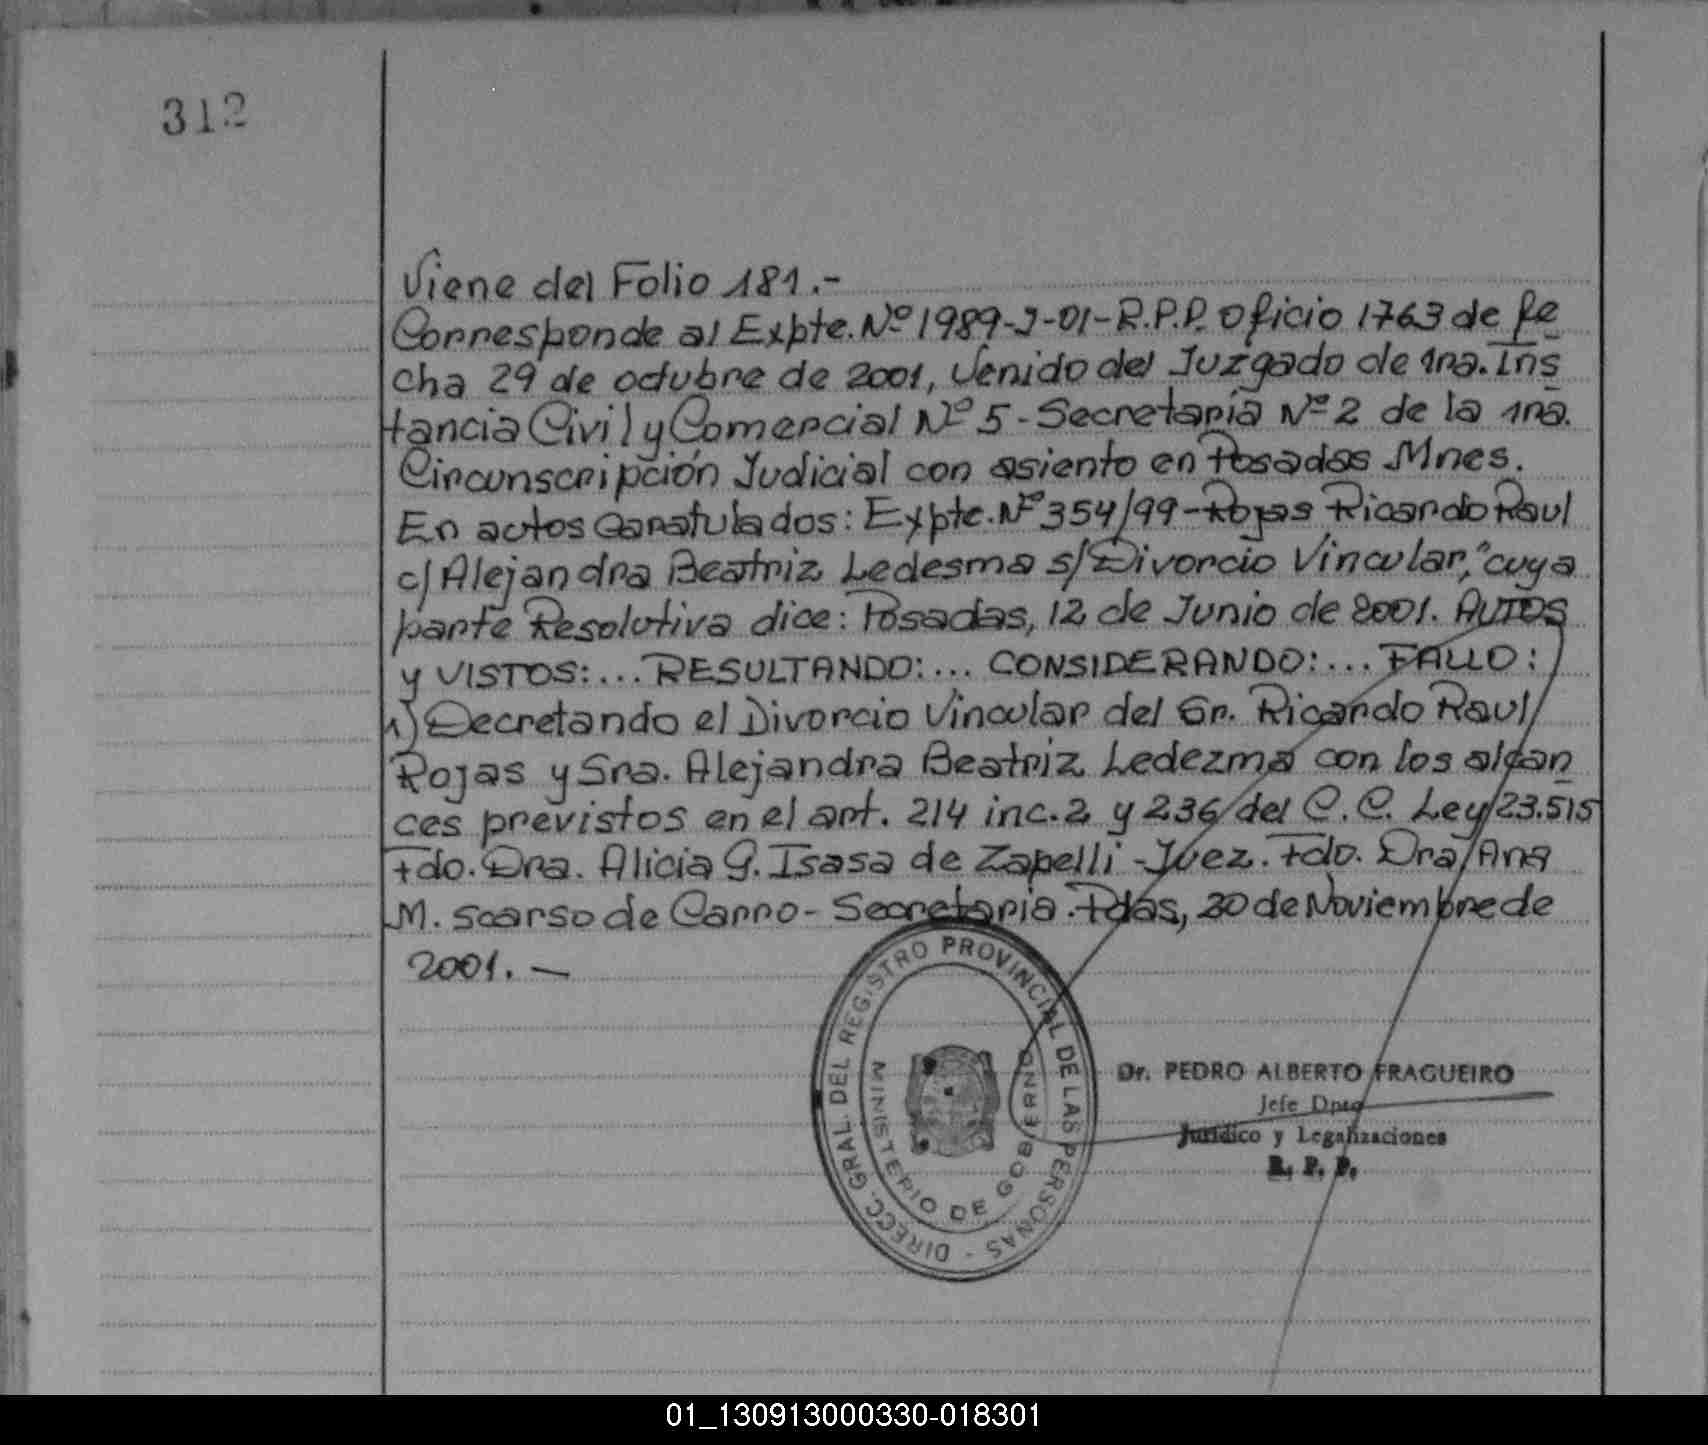 312
Viene del Folio 181.-
Corresponde al Expte. Nº 1989-J-01-R.P.P. Oficio 1763 de fe
cha 29 de octubre de 2001, Venido del Juzgado de 1ra. Ins
tancia Civil y Comercial Nº 5 - Secretaría Nº 2 de la 1ra.
Circunscripción Judicial con asiento en Posadas Mnes.
En autos caratulados: Expte. Nº 354/99 - Rojas Ricardo Raul
c/ Alejandra Beatriz Ledesma s/ Divorcio Vincular," cuya
parte Resolutiva dice: Posadas, 12 de Junio de 2001. AUTOS
y VISTOS:... RESULTANDO:... CONSIDERANDO:... FALLO:
1) Decretando el Divorcio Vincular del Sr. Ricardo Raul
Rojas y Sra. Alejandra Beatriz Ledezma con los alcan
ces previstos en el art. 214 inc. 2 y 236 del C.C. Ley 23.515
Fdo. Dra. Alicia G. Isasa de Zapelli - Juez. Fdo. Dra Ana
M. Scarso de Carro - Secretaria. Pdas, 30 de Noviembre de
2001. —
DIRECC. GRAL. DEL REGISTRO PROVINCIAL DE LAS PERSONAS -
MINISTERIO DE GOBIERNO
Dr. PEDRO ALBERTO FRAGUEIRO
Jefe Dpto
Jurídico y Legalizaciones
R. P. P.
01_130913000330-018301